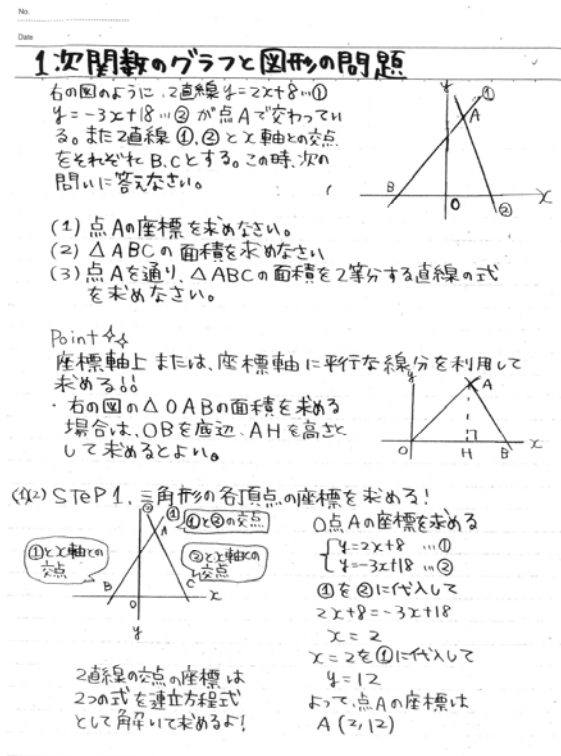 No.
Date
1次関数のグラフと図形の問題
右の図のように、2直線y=2x+8…①
y=-3x+18…②が点Aで交わってい
る。また2直線①、②とx軸との交点
をそれぞれB.Cとする。この時、次の
問いに答えなさい。
y
①
A
B
O
②
x
(1)点Aの座標を求めなさい。
(2)△ABCの面積を求めなさい
(3)点Aを通り、△ABCの面積を2等分する直線の式
を求めなさい。
Point
座標軸上または、座標軸に平行な線分を利用して
求める!!
・右の図の△OABの面積を求める
場合は、OBを底辺、AHを高さと
して求めるとよい。
y
A
O
H
B
x
(1)(2)STeP1.三角形の各頂点の座標を求める!
②
①
A
①と②の交点
①とx軸との
交点
②とx軸との
交点
B
O
C
x
y
2直線の交点の座標は
2つの式を連立方程式
として解いて求めるよ!
○点Aの座標を求める
y=2x+8…①
y=-3x+18…②
①を②に代入して
2x+8=-3x+18
x=2
x=2を①に代入して
y=12
よって、点Aの座標は
A(2,12)